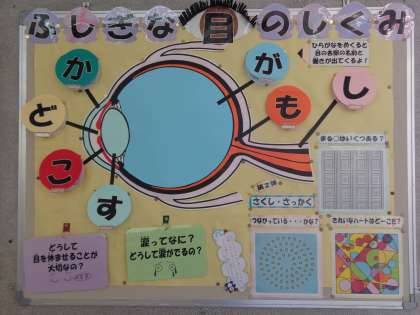 ふしぎな目のしくみ
ひらがなをめくると
目の各部の名前と
働きが出てくるよ!
か
が
し
ど
も
こ
す
まる○はいくつある?
第2弾
さくし・さっかく
つながっている・・・かな?
きれいなハートはどーこだ?
どうして
目を休ませることが
大切なの?
涙ってなに?
どうして涙がでるの?